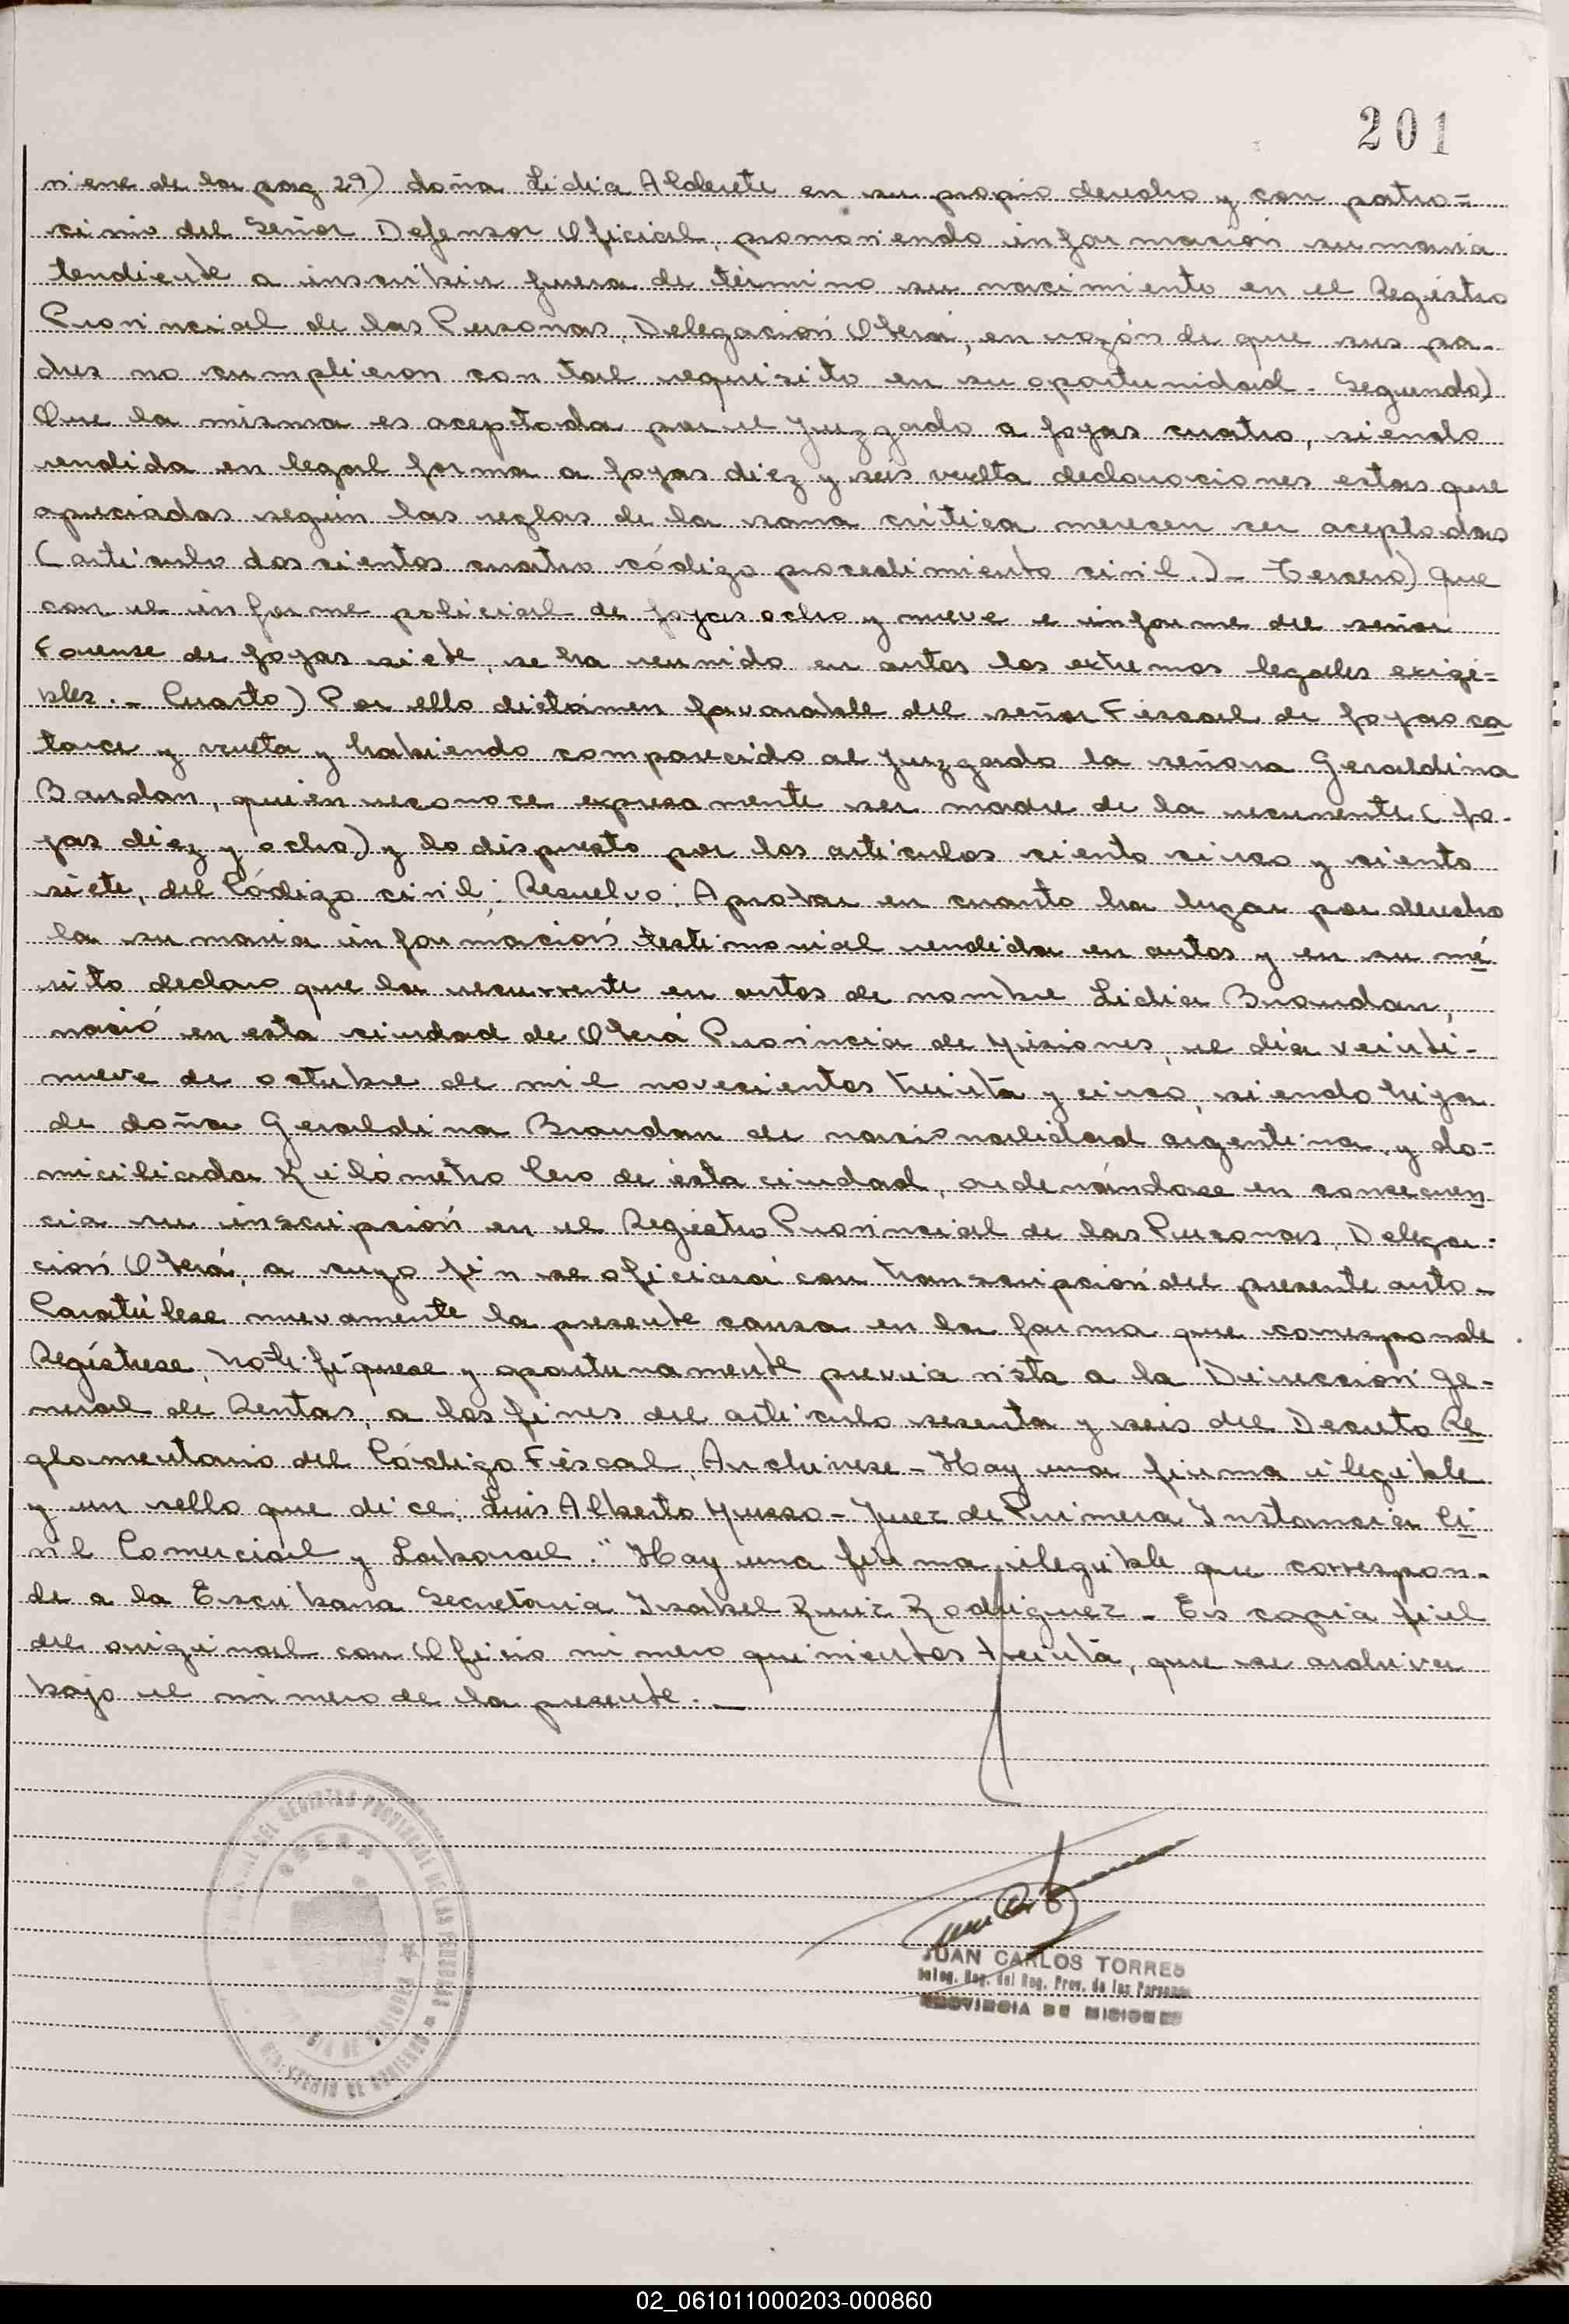 201
viene de la pag 29) doña Lidia Alderete en su propio derecho y con patro=
cinio del Señor Defensor Oficial, promoviendo información sumaria
tendiente a inscribir fuera de término su nacimiento en el Registro
Provincial de las Personas, Delegación Oberá, en razón de que sus pa-
dres no cumplieron con tal requisito en su oportunidad. Segundo)
Que la misma es aceptada por el Juzgado a fojas cuatro, siendo
rendida en legal forma a fojas diez y seis vuelta declaraciones estas que
apreciadas según las reglas de la sana crítica merecen ser aceptadas
(artículo doscientos cuatro código procedimiento civil.) - Tercero) Que
con el informe policial de fojas ocho y nueve e informe del señor
Forense de fojas siete, se ha reunido en autos los extremos legales exigi=
bles. - Cuarto) Por ello dictámen favorable del señor Fiscal de fojas ca
torce y vuelta y habiendo comparecido al Juzgado la señora Geraldina
Bandan, quien reconoce expresamente ser madre de la recurrente (fo-
jas diez y ocho) y lo dispuesto por los artículos ciento cinco y ciento
siete, del Código civil; Resuelvo: Aprobar en cuanto ha lugar por derecho
la sumaria información testimonial rendida en autos y en su mé
rito declaro que la recurrente en autos de nombre Lidia Brandan,
nació en esta ciudad de Oberá Provincia de Misiones, el día veinti-
nueve de octubre de mil novecientos treinta y cinco, siendo hija
de doña Geraldina Brandan de nacionalidad argentina, y do-
miciliada Kilómetro Cero de ésta ciudad, ordenándose en consecuen
cia su inscripción en el Registro Provincial de las Personas, Delega-
ción Oberá, a cuyo fin se oficiará con transcripción del presente auto -
Caratúlese nuevamente la presente causa en la forma que corresponde.
Regístrese, notifíquese y oportunamente previa vista a la Dirección Ge-
neral de Rentas, a los fines del artículo sesenta y seis del Decreto Re
glamentario del Código Fiscal, Archívese - Hay una firma ilegible
y un sello que dice: Luis Alberto Musso - Juez de Primera Instancia Ci
vil Comercial y Laboral." Hay una firma ilegible que correspon-
de a la Escribana Secretaria Isabel Ruiz Rodriguez - Es copia fiel
del original con Oficio número quinientos treinta, que se archiva
bajo el número de la presente. -
JUAN CARLOS TORRES
Deleg. Reg. del Reg. Prov. de las Personas
PROVINCIA DE MISIONES
DEL REGISTRO PROVINCIAL DE LAS PERSONAS
OBERA
MINISTERIO DE GOBIERNO
02_061011000203-000860